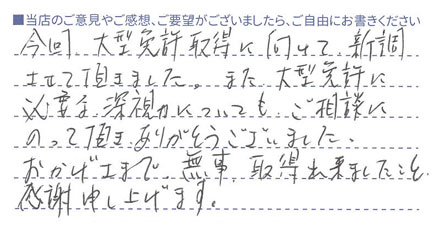 ■当店のご意見やご感想、ご要望がございましたら、ご自由にお書きください
今回、大型免許取得に向けて、新調
させて頂きました。また、大型免許に
必要な深視力についても、ご相談に
のって頂きありがとうございました。
おかげさまで、無事、取得出来ましたことを、
感謝申し上げます。